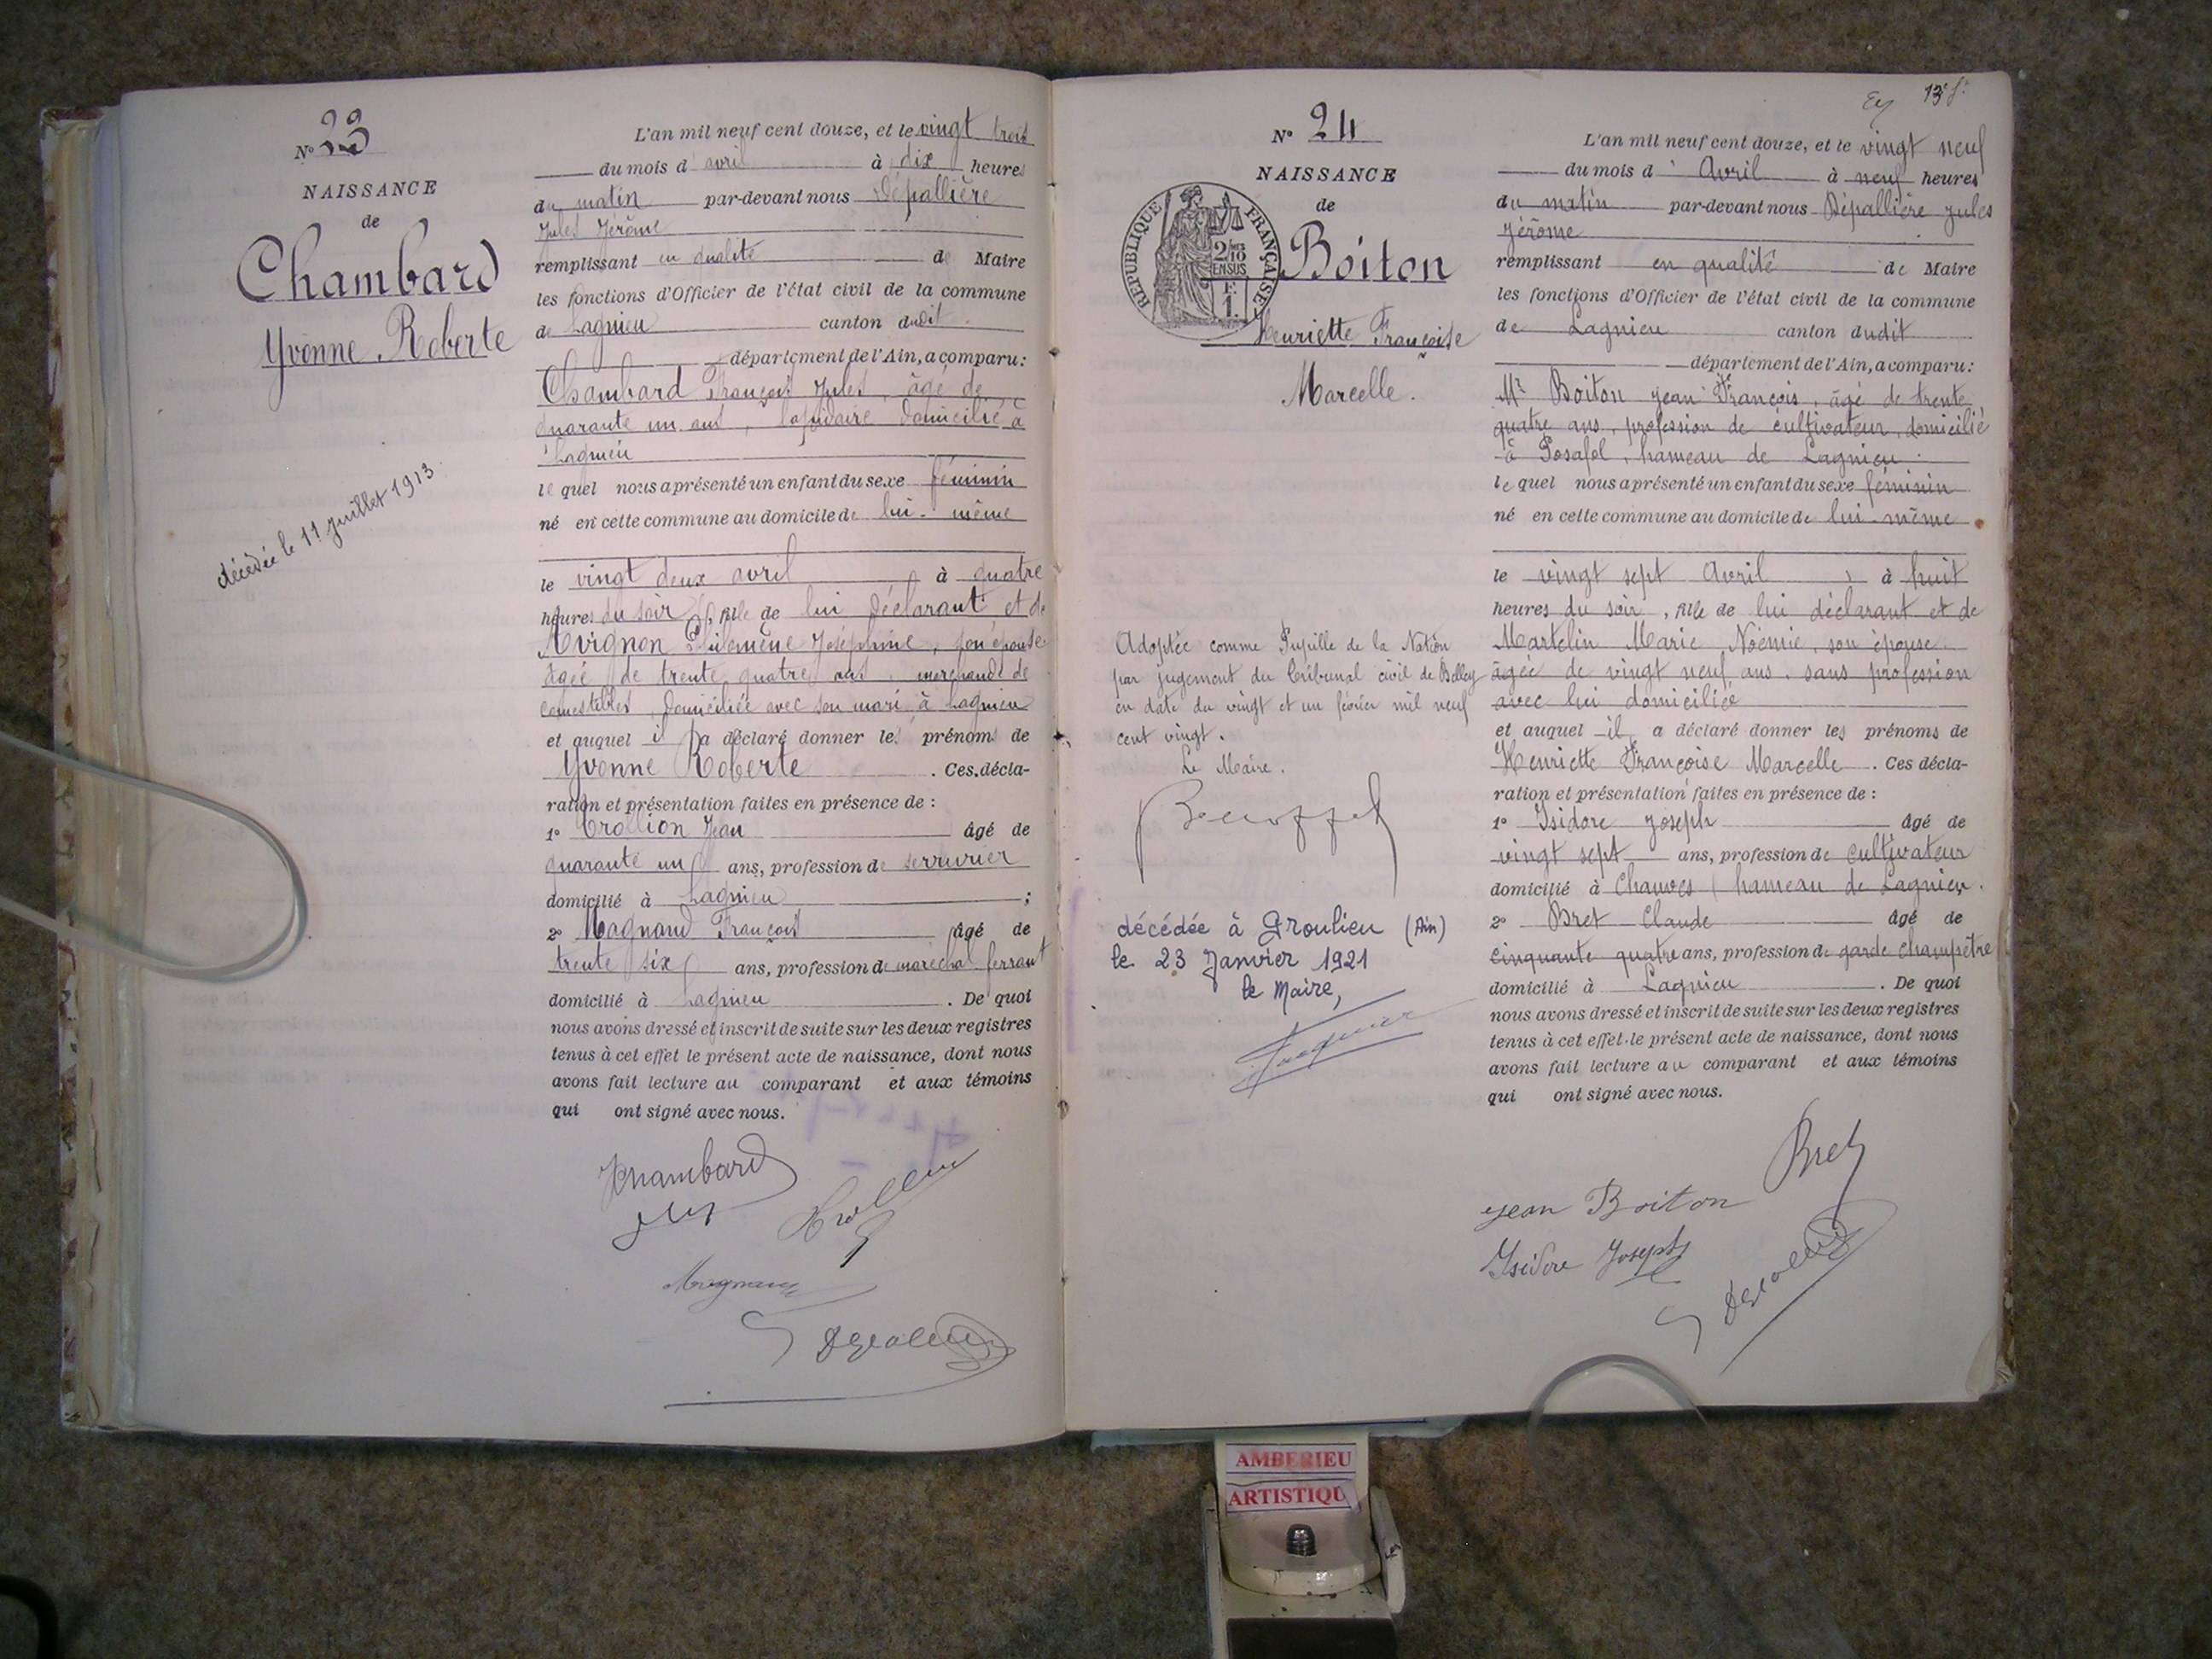 N° 23
NAISSANCE
de
Chambard
Yvonne Roberte
décédée le 11 juillet 1913
L'an mil neuf cent douze, et le vingt trois
du mois d' avril à dix heures
du matin par-devant nous Dépallière
Jules Jérôme
remplissant en qualité de Maire
les fonctions d'Officier de l'état civil de la commune
de Lagnieu canton dudit
département de l'Ain, a comparu:
Chambard François Jules, âgé de
quarante un ans, lapidaire domicilié à
Lagnieu
le quel nous a présenté un enfant du sexe féminin
né en cette commune au domicile de lui-même
le vingt deux avril à quatre
heures du soir, fille de lui déclarant et de
Avignon Philomène Joséphine, son épouse
âgée de trente quatre ans, marchande de
comestibles, domiciliée avec son mari à Lagnieu
et auquel il a déclaré donner les prénoms de
Yvonne Roberte. Ces décla-
ration et présentation faites en présence de :
1° Trollion Jean âgé de
quarante un ans, profession de serrurier
domicilié à Lagnieu ;
2° Magnand François âgé de
trente six ans, profession de maréchal ferrant
domicilié à Lagnieu. De quoi
nous avons dressé et inscrit de suite sur les deux registres
tenus à cet effet le présent acte de naissance, dont nous
avons fait lecture au comparant et aux témoins
qui ont signé avec nous.
Chambard
Magnand
Ey 13e f.
N° 24
NAISSANCE
de
Boiton
Henriette Françoise
Marcelle.
REPUBLIQUE FRANÇAISE
2/10 EN SUS
F. 1.
Adoptée comme Pupille de la Nation
par jugement du Tribunal civil de Belley
en date du vingt et un février mil neuf
cent vingt.
Le Maire.
décédée à Groulieu (Ain)
le 23 Janvier 1921
le Maire,
L'an mil neuf cent douze, et le vingt neuf
du mois d' Avril à neuf heures
du matin par-devant nous Dépallière Jules
Jérôme
remplissant en qualité de Maire
les fonctions d'Officier de l'état civil de la commune
de Lagnieu canton dudit
département de l'Ain, a comparu:
Mr Boiton Jean François, âgé de trente
quatre ans, profession de cultivateur, domicilié
à Posafol, hameau de Lagnieu
le quel nous a présenté un enfant du sexe féminin
né en cette commune au domicile de lui-même
le vingt sept Avril, à huit
heures du soir, fille de lui déclarant et de
Martelin Marie Noémie, son épouse
âgée de vingt neuf ans, sans profession
avec lui domiciliée
et auquel il a déclaré donner les prénoms de
Henriette Françoise Marcelle. Ces décla-
ration et présentation faites en présence de :
1° Isidore Joseph âgé de
vingt sept ans, profession de cultivateur
domicilié à Chauves hameau de Lagnieu.
2° Bret Claude âgé de
cinquante quatre ans, profession de garde champêtre
domicilié à Lagnieu. De quoi
nous avons dressé et inscrit de suite sur les deux registres
tenus à cet effet le présent acte de naissance, dont nous
avons fait lecture au comparant et aux témoins
qui ont signé avec nous.
Bret
Jean Boiton
Isidore Joseph
AMBERIEU
ARTISTIQU